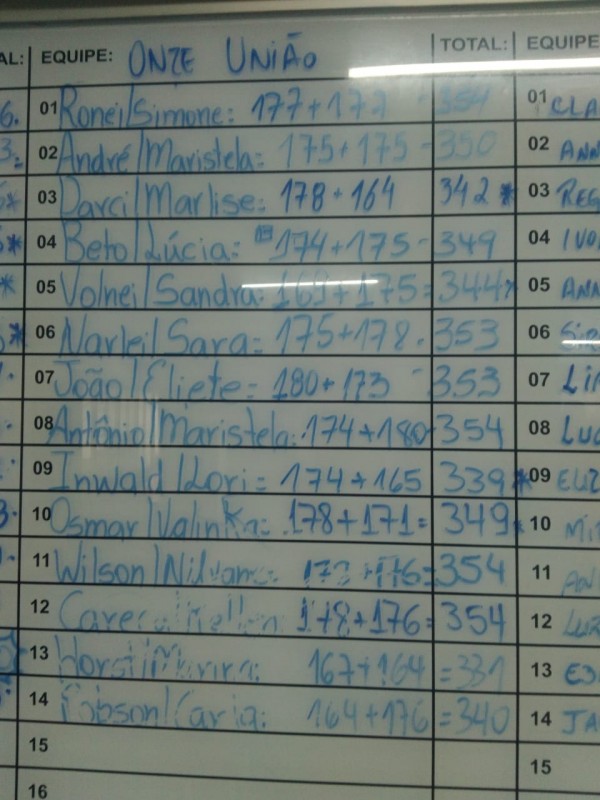 AL: EQUIPE: ONZE UNIÃO TOTAL: EQUIPE
6. 01 Ronei/Simone: 177+177 354 01 CLA
3. 02 André/Maristela: 175+175 - 350 02 ANN
* 03 Darci/Marlise: 178+164 342 * 03 REG
* 04 Beto/Lúcia: 174+175 - 349 04 IVO
* 05 Volnei/Sandra: 169+175 = 344 * 05 ANN
* 06 Narlei/Sara: 175+178 . 353 06
07 João/Eliete: 180+173 - 353 07 LIN
08 Antônio/Maristela: 174+180 354 08 LUC
09 Inwald/Lori = 174+165 339 * 09 ELIZ
3. 10 Osmar/Valinka: 178+171 = 349 10 MI
11 Wilson/ 176 = 354 11
12 178+176 = 354 12 LUZ
13 Horst/ 167+164 = 331 13 ES
14 Robson/Carla: 164+176 = 340 14 JA
15 15
16